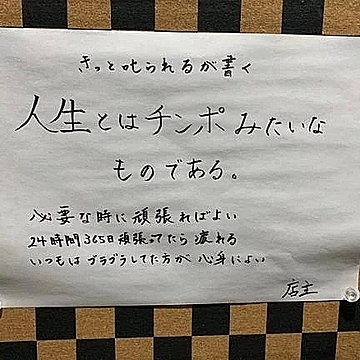 きっと叱られるが書く
人生とはチンポみたいな
ものである。
必要な時に頑張ればよい
24時間365日頑張ってたら疲れる
いつもはブラブラしてた方が心身によい
店主